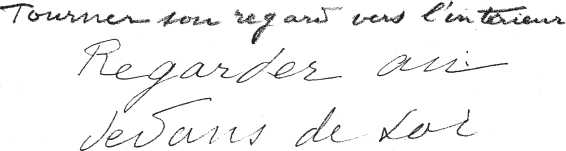 Tourner son regard vers l'intérieur
Regarder au
dedans de soi